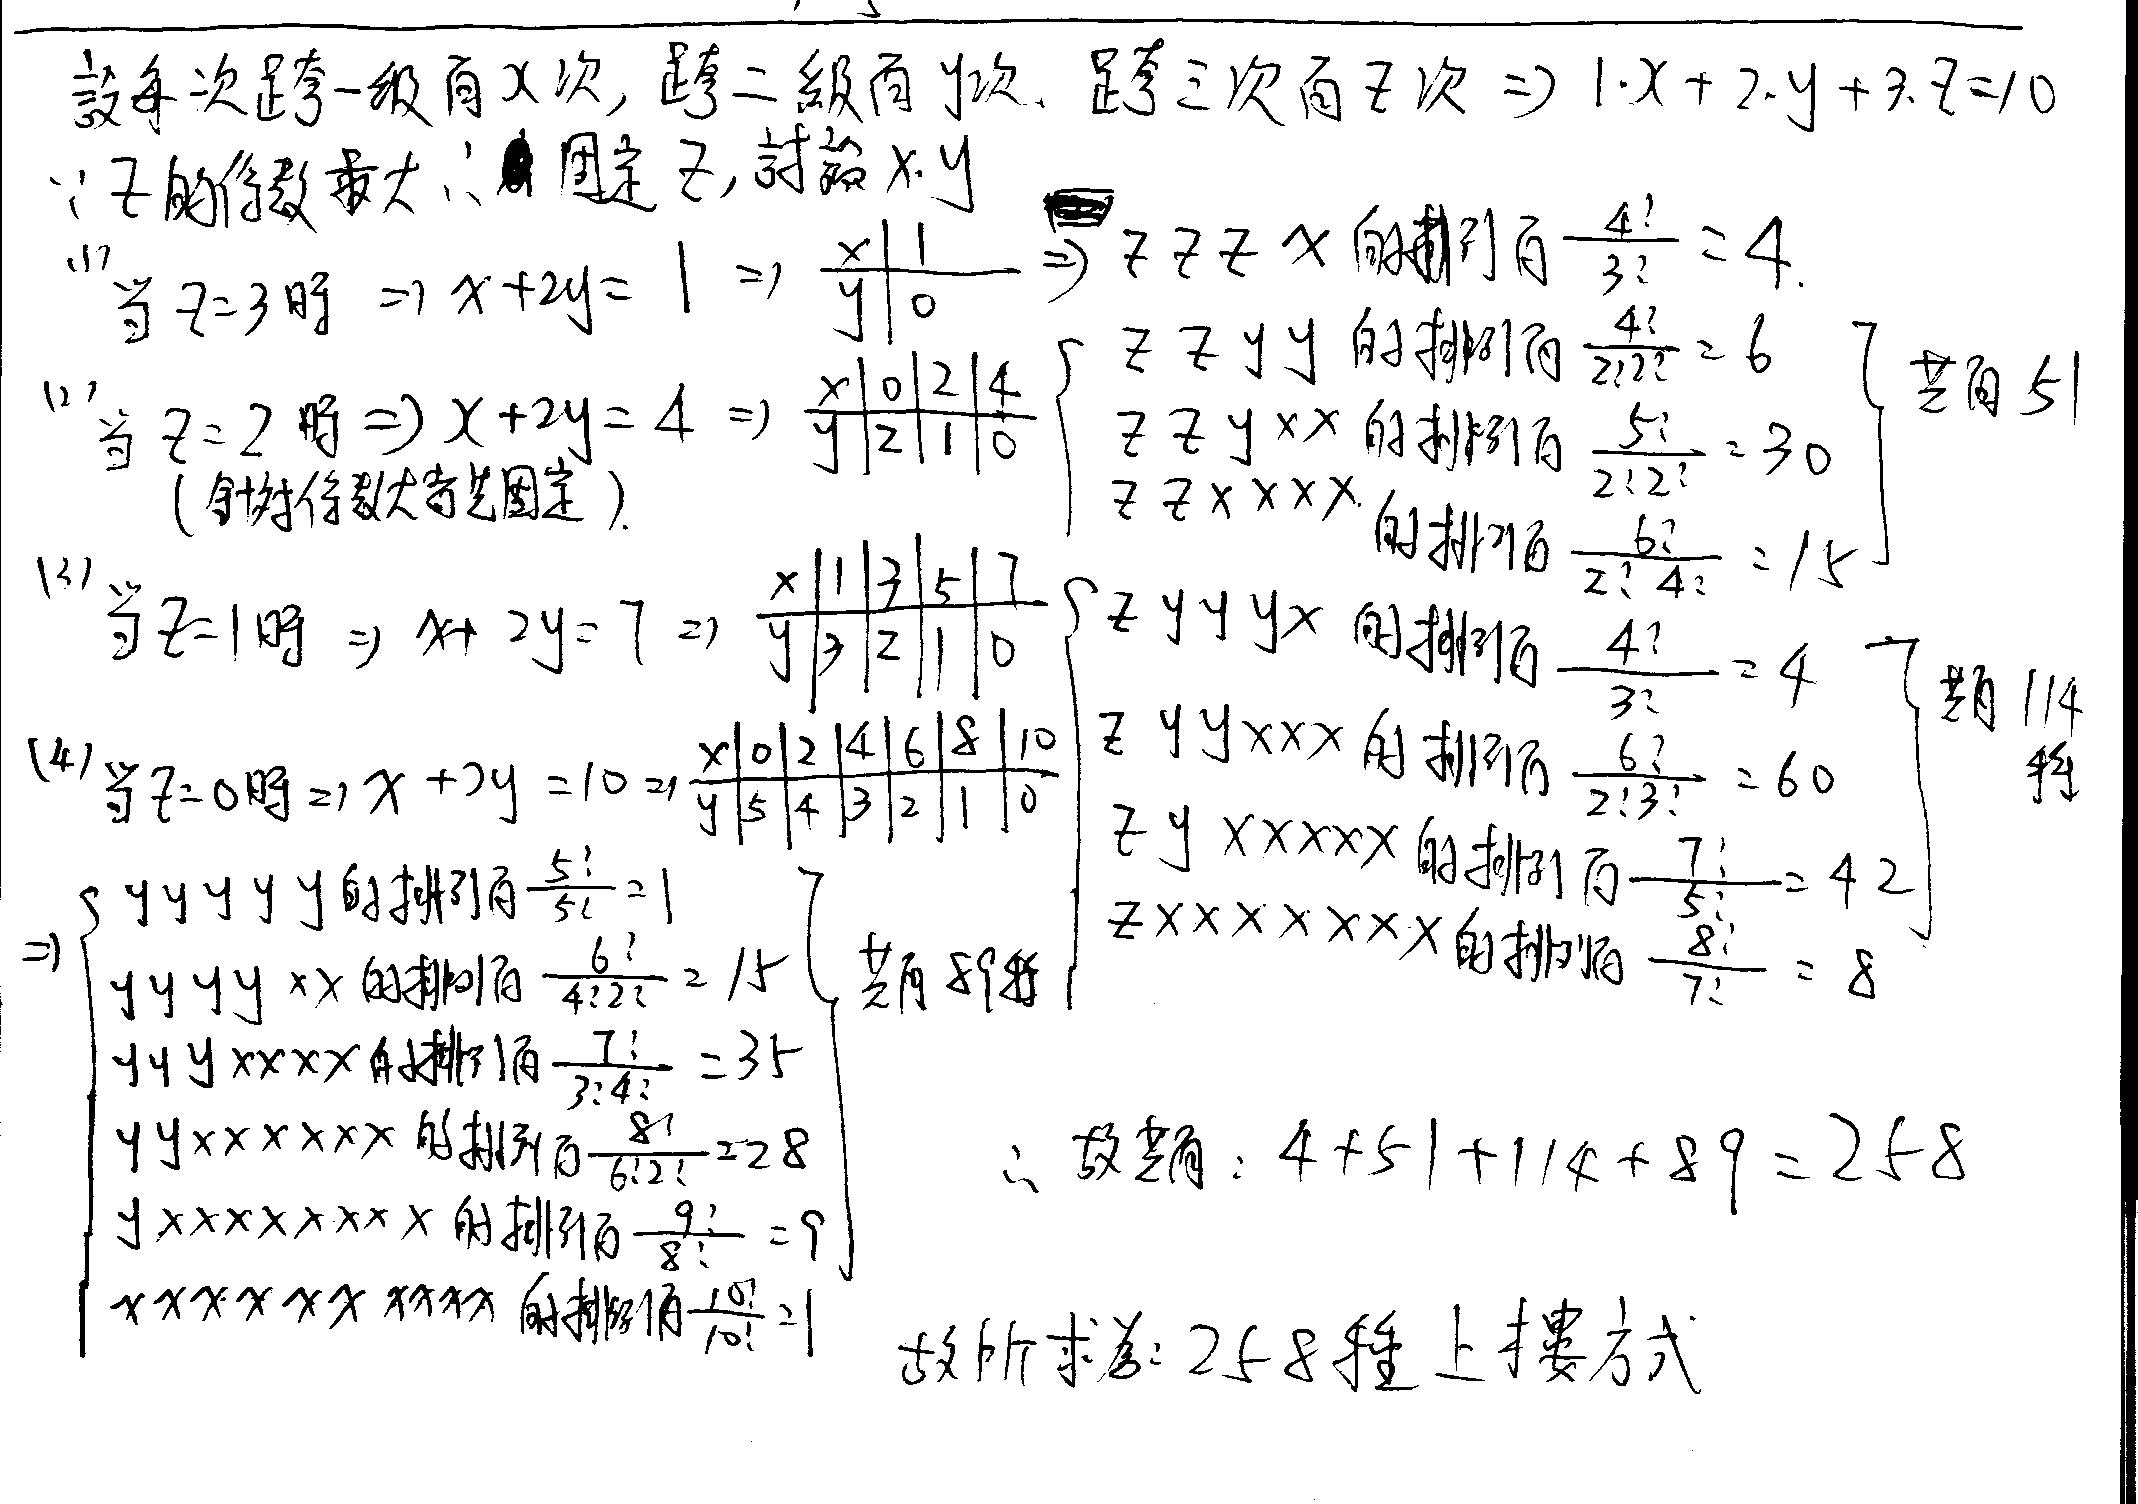 設每次跨一級有x次, 跨二級有y次、跨三次有z次 => 1·x+2·y+3·z=10
∵z的係數最大 ∴ 固定z, 討論x.y
(1) 當z=3時 => x+2y=1 => x | 1
y | 0
=> z z z x 的排列有 4!/3! = 4.
(2) 當z=2時 => x+2y=4 => x | 0 | 2 | 4
y | 2 | 1 | 0
(針對係數大者先固定).
z z y y 的排列有 4!/2!2! = 6
z z y x x 的排列有 5!/2!2! = 30
z z x x x x 的排列有 6!/2!4! = 15
共有 51
(3) 當z=1時 => x+2y=7 => x | 1 | 3 | 5 | 7
y | 3 | 2 | 1 | 0
z y y y x 的排列有 4!/3! = 4
z y y x x x 的排列有 6!/2!3! = 60
z y x x x x x 的排列有 7!/5! = 42
z x x x x x x x 的排列有 8!/7! = 8
共有 114
種
(4) 當z=0時 => x+2y=10 => x | 0 | 2 | 4 | 6 | 8 | 10
y | 5 | 4 | 3 | 2 | 1 | 0
=> y y y y y 的排列有 5!/5! = 1
y y y y x x 的排列有 6!/4!2! = 15
y y y x x x x 的排列有 7!/3!4! = 35
y y x x x x x x 的排列有 8!/6!2! = 28
y x x x x x x x x 的排列有 9!/8! = 9
x x x x x x x x x x 的排列有 10!/10! = 1
共有 89種
∴ 故共有: 4+51+114+89=258
故所求為: 258種上樓方式